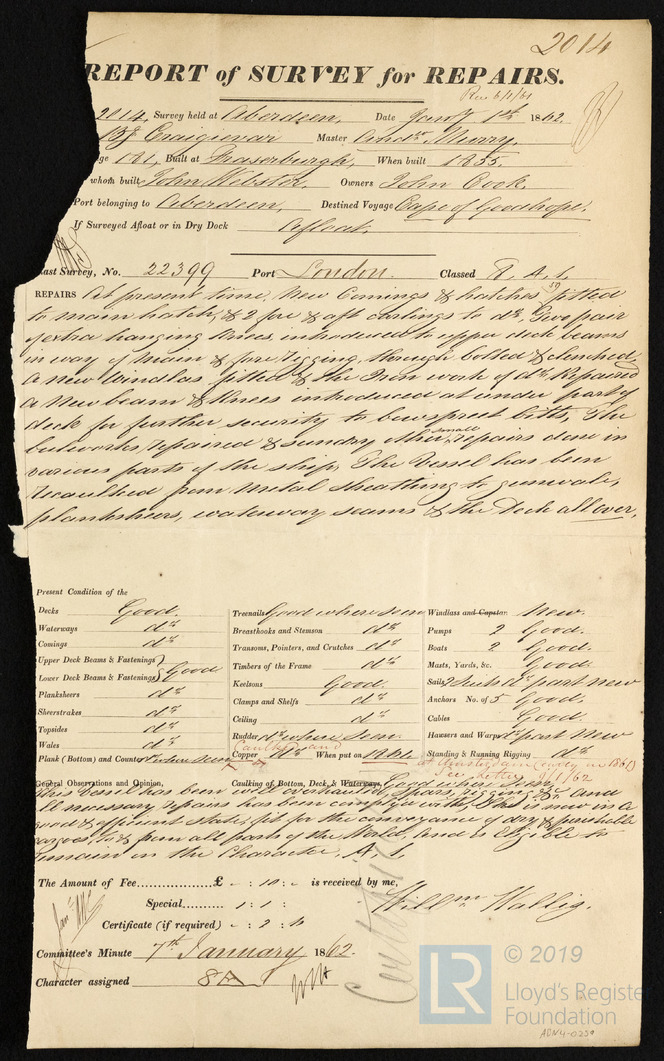 2014
REPORT of SURVEY for REPAIRS.
Rec 6/1/61
2014, Survey held at Aberdeen, Date Jany 1st 1862.
Bg Craigievar Master Andw Murry.
ge 121, Built at Fraserburgh, When built 1855.
whom built John Webster, Owners John Cook.
Port belonging to Aberdeen, Destined Voyage Cape of Goodhope.
If Surveyed Afloat or in Dry Dock Afloat.
ast Survey, No. 22399 Port London. Classed 8 A 1
REPAIRS At present time, New Comings & hatches fitted
to main hatch, & 2 fore & aft carlings to do, Two pair
of extra hanging Knees, introduced to upper deck beams
in way of Main & fore rigging, through bolted & clenched
A new Windlas fitted & the Iron work of do Repaired
a New beam & Knees introduced at under part of
deck for further security to bowspreet bitts, The
bulworks, repaired & sundry other small repairs done in
various parts of the ship, The Vessel has been
recaulked from Metal sheathing to gunwale,
planksheers, waterway seams & the Deck all over.
Present Condition of the
Decks Good. Treenails Good where seen Windlass and Capstan New.
Waterways do Breasthooks and Stemson do Pumps 2 Good.
Comings do Transoms, Pointers, and Crutches do Boats 2 Good.
Upper Deck Beams & Fastenings Timbers of the Frame do Masts, Yards, &c. Good.
Lower Deck Beams & Fastenings Good Keelsons Good. Sails part new
Planksheers do Clamps and Shelfs do Anchors No. of 5 Good.
Sheerstrakes do Ceiling do Cables Good.
Topsides do Rudder do where seen. Hawsers and Warps do part New
Wales do Caulked and Copper do When put on 1861. Standing & Running Rigging do
Plank (Bottom) and Counter do where seen at Amsterdam (Survey in 1861)
See Letter 1/1/62
General Observations and Opinion, Caulking of Bottom, Deck, & Waterways, Good where seen
This Vessel has been overhauled, Spars, rigging &c and
ll necessary repairs has been complied with, She is now in a
good & efficient State, fit for the conveyance of dry & perishable
cargoes, to & from all parts of the World, and is Eligible to
remain in the Character A 1
The Amount of Fee................£ - : 10 : - is received by me,
Special.......... 1 : 1 : Willm Wallis.
Certificate (if required) - : 2 : 6
Committee's Minute 7th January 1862.
Character assigned 8A
© 2019
LR
Lloyd's Register
Foundation